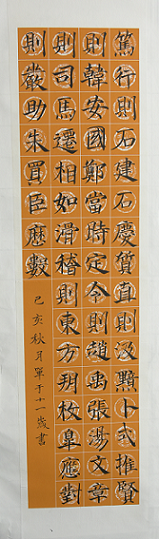 篤行則石建石慶質直則汲黯卜式推賢
則韓安國鄭當時定令則趙禹張湯文章
則司馬遷相如滑稽則東方朔枚皋應對
則嚴助朱買臣歷數
己亥秋月單于十一歲書